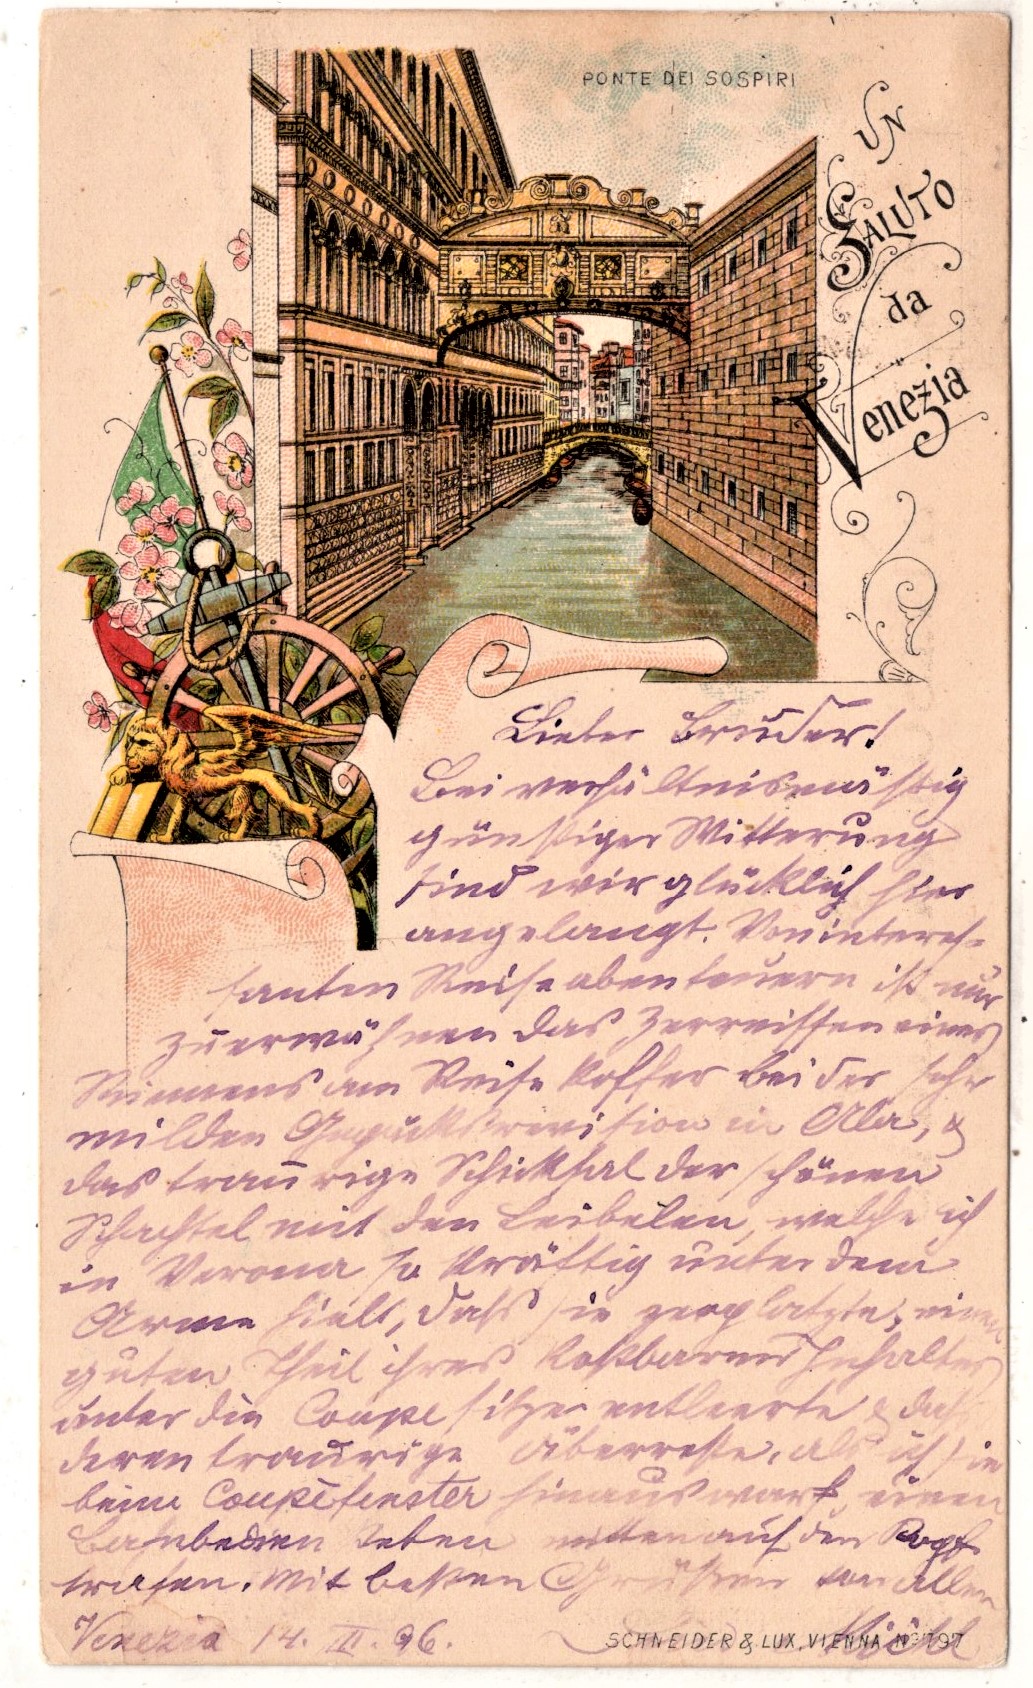 PONTE DEI SOSPIRI
UN
SALUTO
da
Venezia
Lieber Bruder!
Bei verhältnismäßig
günstiger Witterung
sind wir glücklich hier
angelangt. Von interes-
santen Reiseabenteuern ist nur
zu erwähnen das Zerreissen eines
Riemens am Reisekoffer bei der sehr
milden Gepäcksrevision in Ala, &
das traurige Schicksal der schönen
Schachtel mit den Leibelen, welche ich
in Verona so kräftig unter dem
Arme hielt, daß sie zerplatzte, einen
guten Theil ihres kostbaren Inhaltes
unter die Coupesitze entleerte & daß
deren traurige Überreste, als ich sie
beim Coupéfenster hinauswarf, einen
Bahnbediensteten mitten auf den Kopf
trafen. Mit besten Grüßen von allen
Venezia 14. II. 96.
SCHNEIDER & LUX, VIENNA Nº 1797